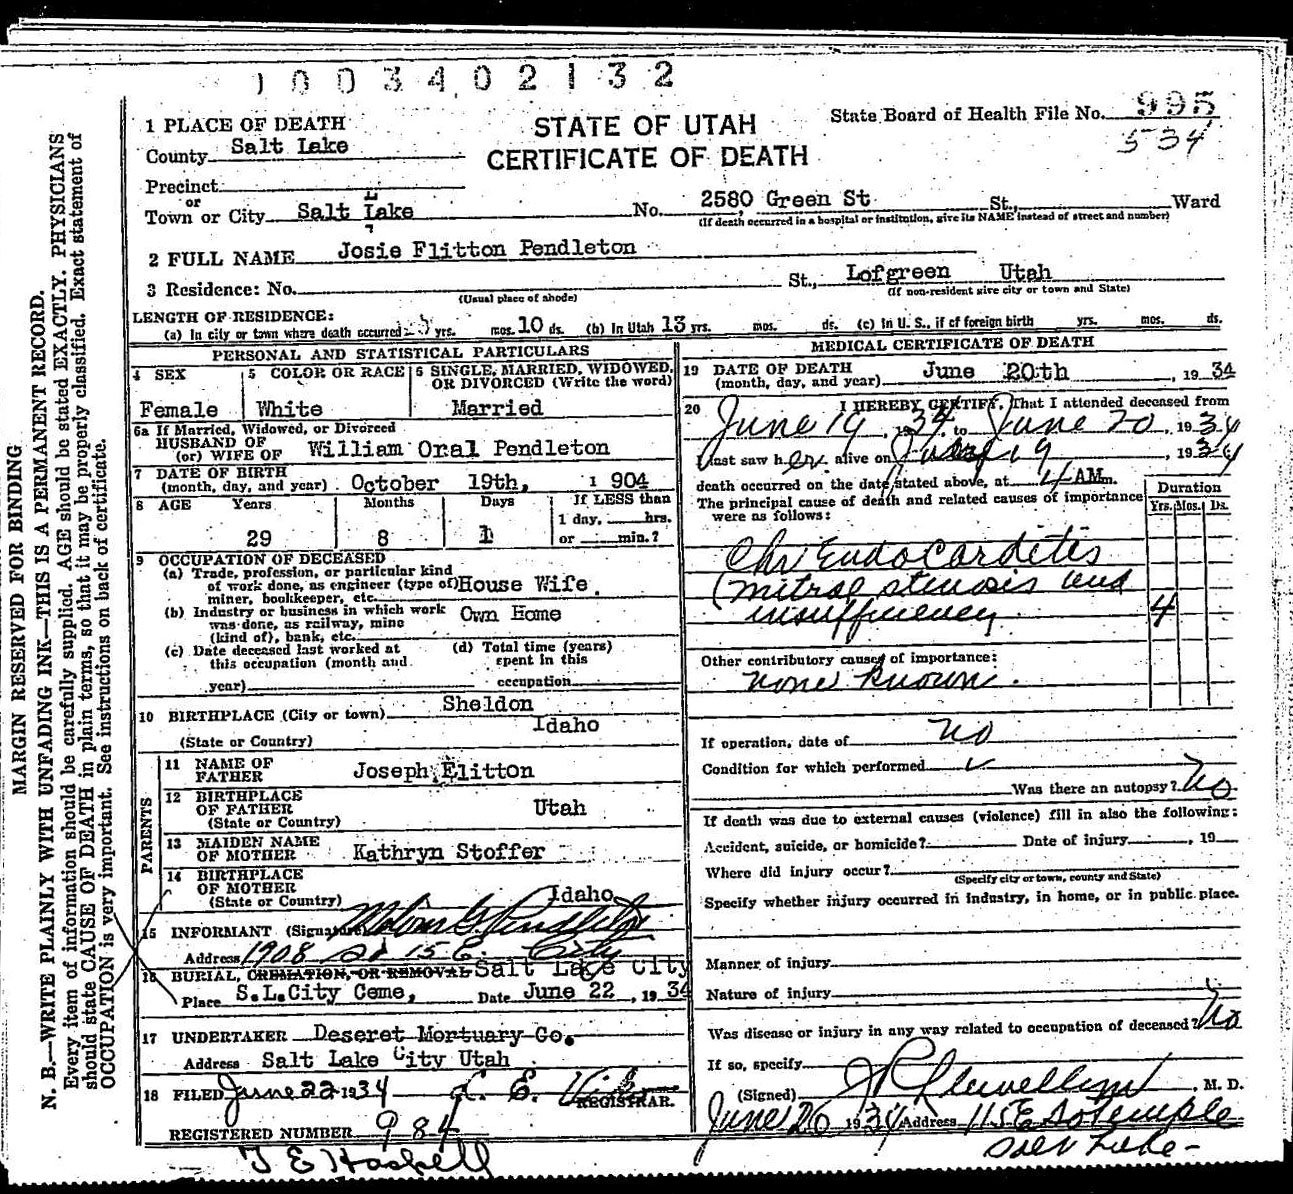 1003402132
State Board of Health File No. 995
534
STATE OF UTAH
CERTIFICATE OF DEATH
1 PLACE OF DEATH
County Salt Lake
Precinct
or
Town or City Salt Lake No. 2580 Green St St., Ward
(If death occurred in a hospital or institution, give its NAME instead of street and number)
2 FULL NAME Josie Flitton Pendleton
3 Residence: No. St., Lofgreen Utah
(Usual place of abode) (If non-resident give city or town and State)
LENGTH OF RESIDENCE:
(a) In city or town where death occurred yrs. mos. 10 ds. (b) In Utah 13 yrs. mos. ds. (c) In U. S., if of foreign birth yrs. mos. ds.
PERSONAL AND STATISTICAL PARTICULARS
4 SEX
Female
5 COLOR OR RACE
White
6 SINGLE, MARRIED, WIDOWED, OR DIVORCED (Write the word)
Married
6a If Married, Widowed, or Divorced
HUSBAND OF
(or) WIFE OF William Oral Pendleton
7 DATE OF BIRTH
(month, day, and year) October 19th, 1904
8 AGE Years Months Days If LESS than
1 day, hrs.
29 8 1 or min.?
9 OCCUPATION OF DECEASED
(a) Trade, profession, or particular kind
of work done, as engineer (type of) House Wife
miner, bookkeeper, etc.
(b) Industry or business in which work Own Home
was done, as railway, mine
(kind of), bank, etc.
(c) Date deceased last worked at (d) Total time (years)
this occupation (month and spent in this
year) occupation
10 BIRTHPLACE (City or town) Sheldon
Idaho
(State or Country)
PARENTS
11 NAME OF
FATHER Joseph Flitton
12 BIRTHPLACE
OF FATHER Utah
(State or Country)
13 MAIDEN NAME
OF MOTHER Kathryn Stoffer
14 BIRTHPLACE
OF MOTHER
(State or Country) Idaho
15 INFORMANT (Signature) Pendleton
Address 1908 So 15 E. City
16 BURIAL, CREMATION, OR REMOVAL Salt Lake City
Place S.L.City Ceme, Date June 22, 1934
17 UNDERTAKER Deseret Mortuary Co.
Address Salt Lake City Utah
18 FILED June 22 1934
REGISTRAR.
REGISTERED NUMBER 984
T E Haskell
MEDICAL CERTIFICATE OF DEATH
19 DATE OF DEATH
(month, day, and year) June 20th, 1934
20 I HEREBY CERTIFY, That I attended deceased from
June 19, 1934, to June 20, 1934
I last saw her alive on June 19, 1934
death occurred on the date stated above, at 4 AM m.
The principal cause of death and related causes of importance
were as follows:
Duration
Yrs. Mos. Ds.
Chr Endocarditis
(mitral stenosis and
insufficiency 4
Other contributory causes of importance:
none known.
If operation, date of no
Condition for which performed
Was there an autopsy? No
If death was due to external causes (violence) fill in also the following:
Accident, suicide, or homicide? Date of injury , 19
Where did injury occur?
(Specify city or town, county and State)
Specify whether injury occurred in industry, in home, or in public place.
Manner of injury
Nature of injury
Was disease or injury in any way related to occupation of deceased? No
If so, specify
(Signed) Llewellyn, M. D.
June 20 1934 Address 115 E So Temple
Salt Lake-
MARGIN RESERVED FOR BINDING
N. B.—WRITE PLAINLY WITH UNFADING INK—THIS IS A PERMANENT RECORD.
Every item of information should be carefully supplied. AGE should be stated EXACTLY. PHYSICIANS
should state CAUSE OF DEATH in plain terms, so that it may be properly classified. Exact statement of
OCCUPATION is very important. See instructions on back of certificate.